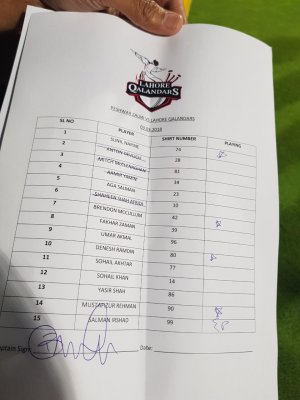 LAHORE
QALANDARS
PESHAWAR ZALMI VS LAHORE QALANDARS
SL NO PLAYER SHIRT NUMBER PLAYING
1 SUNIL NARINE 74
2 ANTON DEVCICH 28
3 MITCH MCCLENAGHAN 81
4 AAMIR YAMIN 14
5 AGA SALMAN 23
6 SHAHEEN SHAH AFRIDI 10
7 BRENDON MCCULLUM 42
8 FAKHAR ZAMAN 39
9 UMAR AKMAL 96
10 DENESH RAMDIN 80
11 SOHAIL AKHTAR 77
12 SOHAIL KHAN 14
13 YASIR SHAH 86
14 MUSTAFIZUR REHMAN 90
15 SALMAN IRSHAD 99
aptain Sign Date: